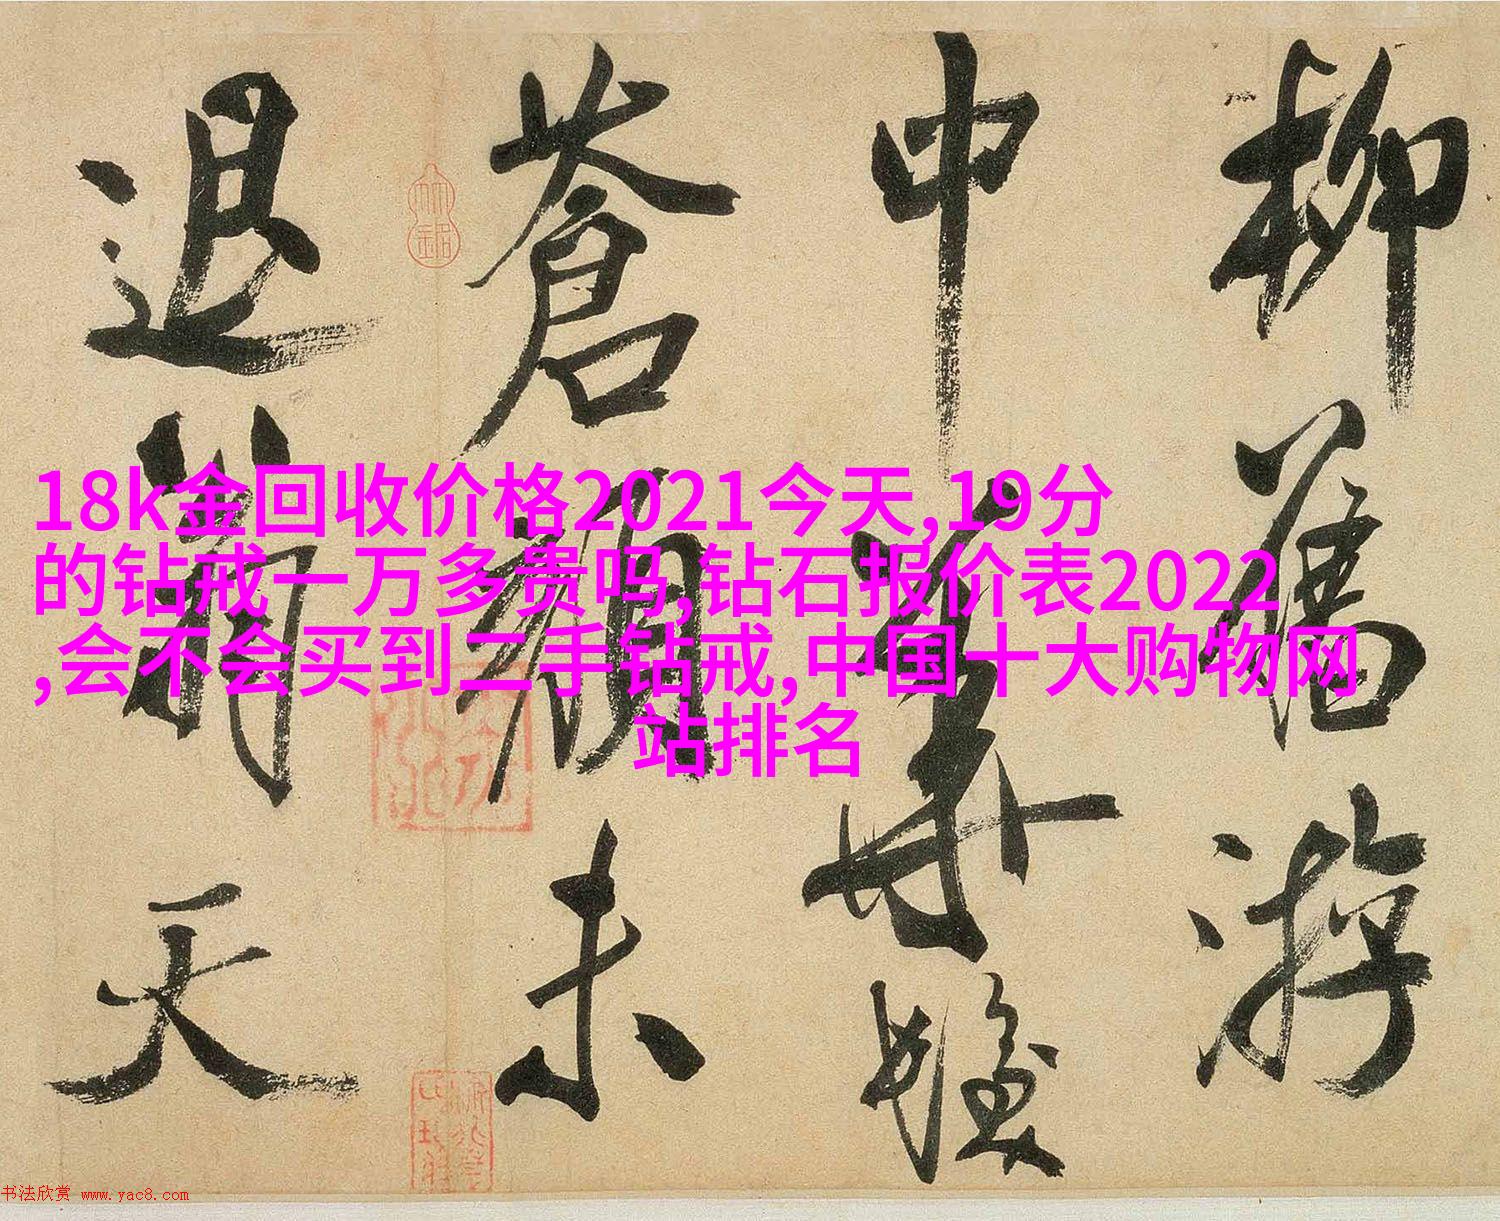 18k金回收价格2021今天,19分
的钻戒一万多贵吗,钻石报价表2022
,会不会买到二手钻戒,中国十大购物网
站排名
柳舊游
中
蒼顏未
退
天
书法欣赏 www.yac8.com